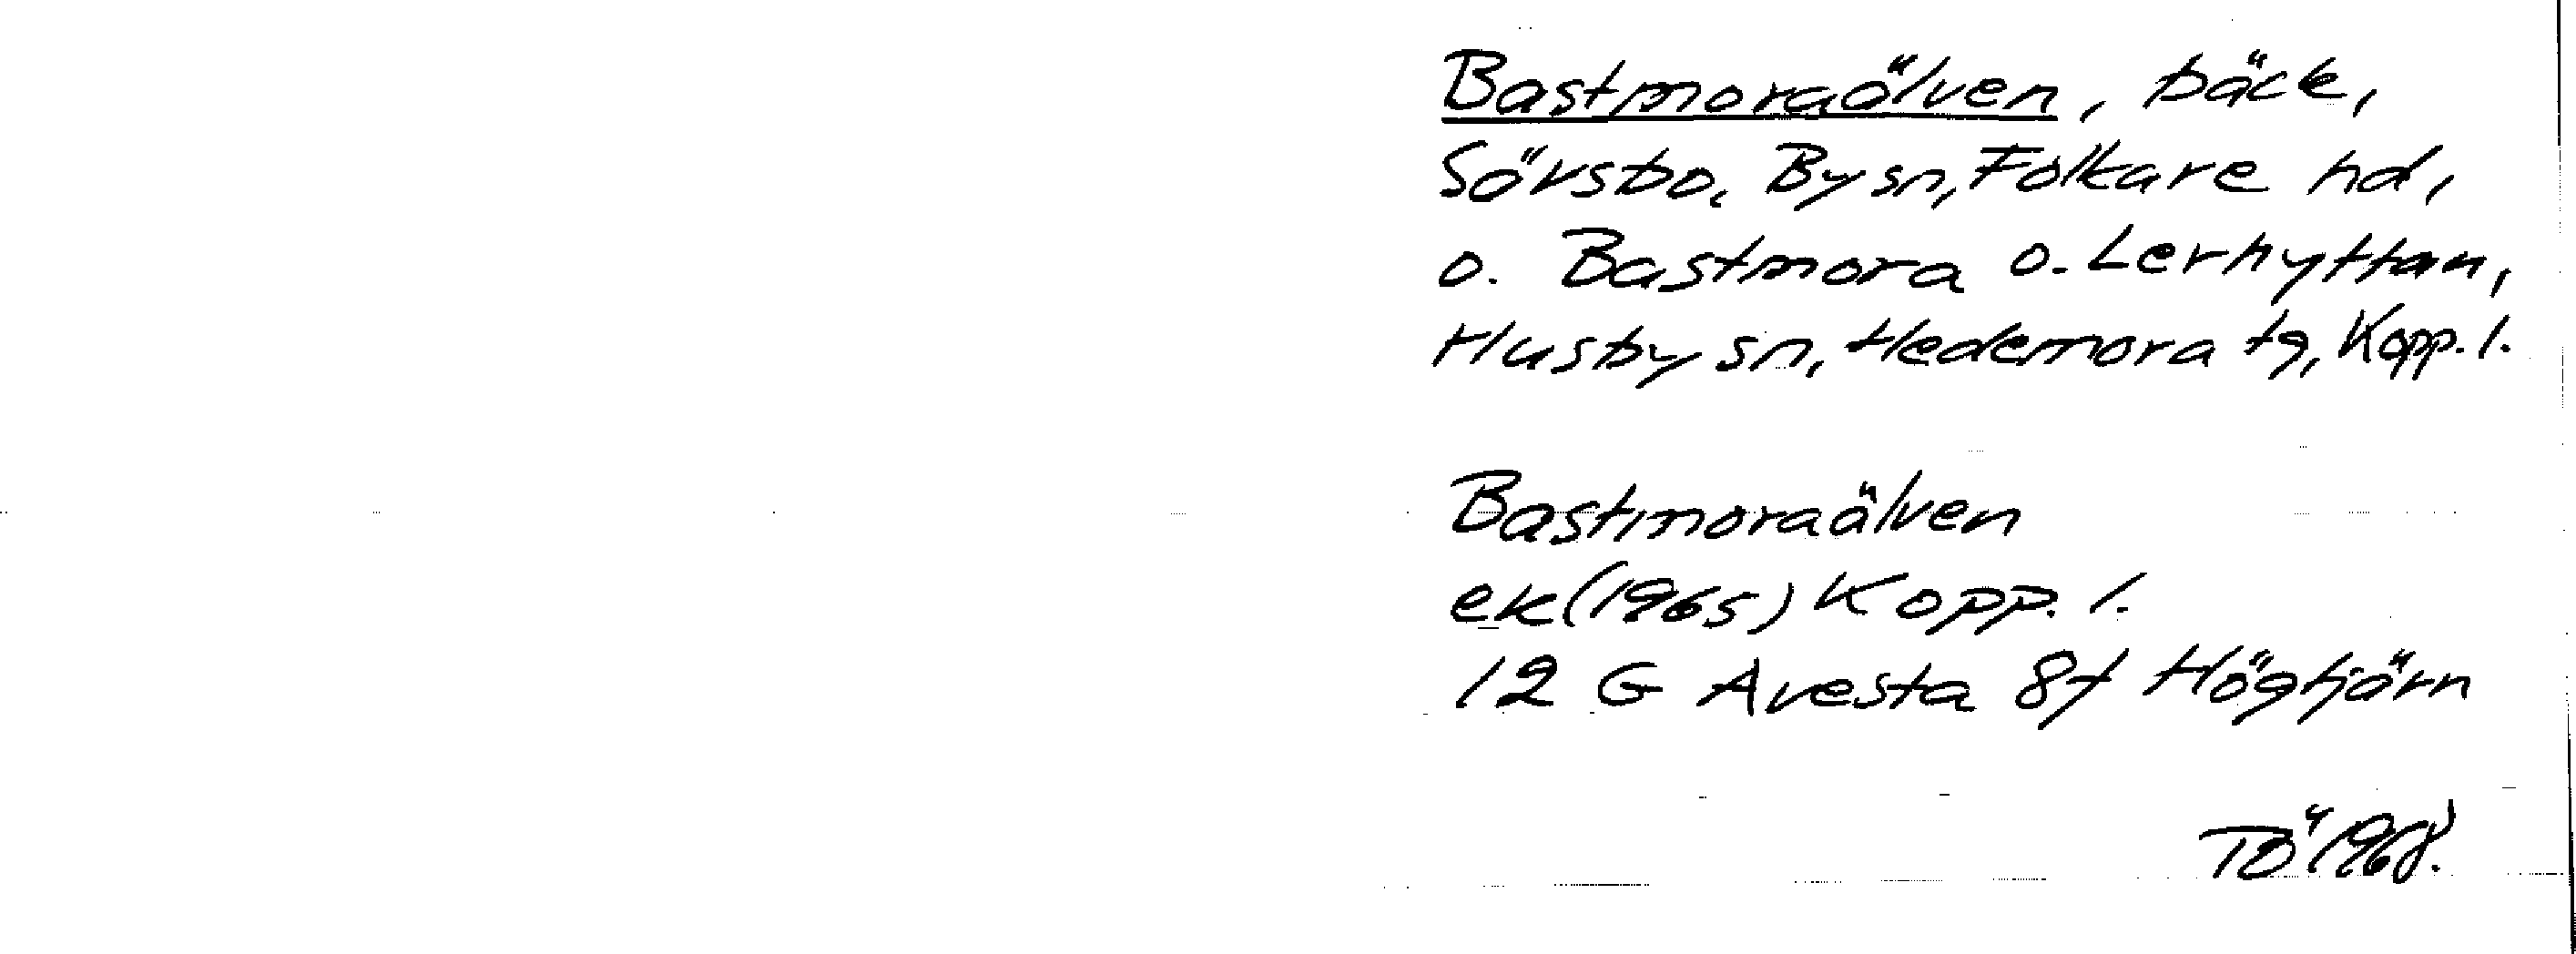 Bastmoraälven, bäck,
Sörsbo, By sn, Folkare hd,
o. Bastmora o. Lerhyttan,
Husby sn, Hedemora tg, Kopp. l.
Bastmoraälven
ek (1965) Kopp. l.
12 G Avesta 8f Högtjärn
TÖ 1968.